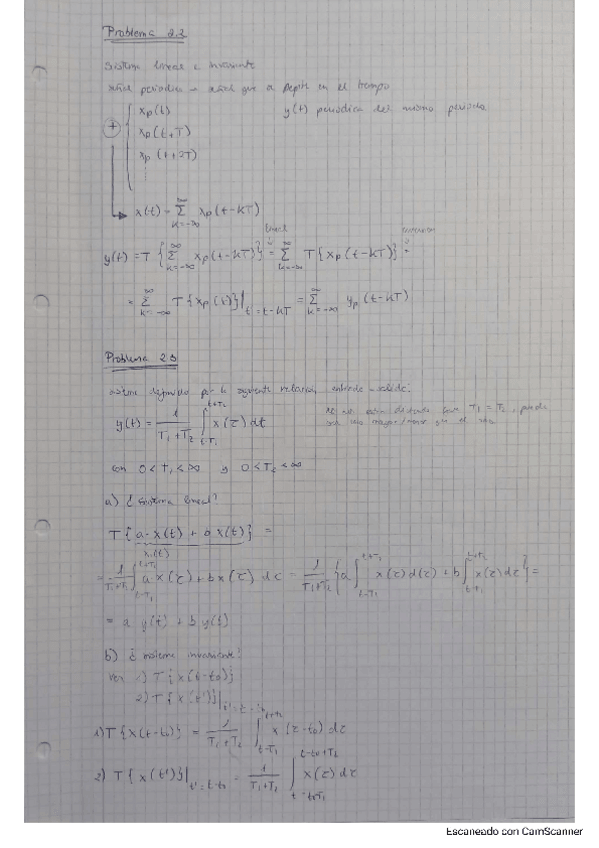 Problema 2.2
Sistema lineal e invariante
señal periodica → señal que se repite en el tiempo
xp(t)
y(t) periodica del mismo periodo
+
xp(t+T)
xp(t+2T)
x(t) = Σ_{k=-∞}^{∞} xp(t-kT)
y(t) = T{Σ_{k=-∞}^{∞} xp(t-kT)} = Σ_{k=-∞}^{∞} T{xp(t-kT)} =
= Σ_{k=-∞}^{∞} T{xp(t)}|_{t=t-kT} = Σ_{k=-∞}^{∞} yp(t-kT)
Problema 2.3
sistema definido por la siguiente relación entrada-salida:
y(t) = 1/(T1+T2) ∫_{t-T1}^{t+T2} x(τ) dt
con 0 < T1 < ∞ y 0 < T2 < ∞
a) ¿sistema lineal?
T{a·x(t) + b x(t)} =
= 1/(T1+T2) ∫_{t-T1}^{t+T2} a x(τ) + b x(τ) dτ = 1/(T1+T2) {a ∫_{t-T1}^{t+T2} x(τ) d(τ) + b ∫_{t-T1}^{t+T2} x(τ) dτ} =
= a y(t) + b y(t)
b) ¿ invariante?
ver 1) T{x(t-t0)}
2) T{x(t')}|
1) T{x(t-t0)} = 1/(T1+T2) ∫_{t-T1}^{t+T2} x(τ-t0) dτ
2) T{x(t')}|_{t'=t-t0} = 1/(T1+T2) ∫_{t-t0-T1}^{t-t0+T2} x(τ) dτ
Escaneado con CamScanner